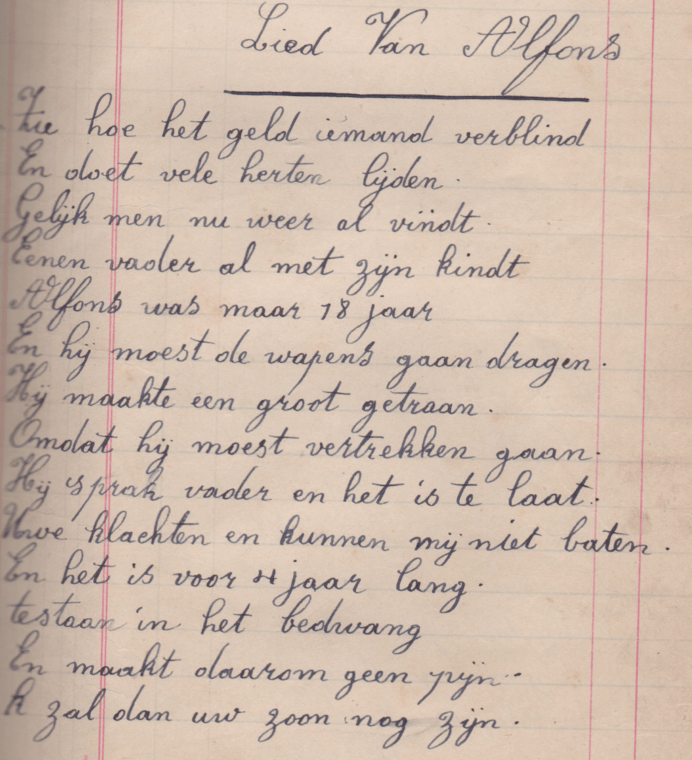 Lied Van Alfons
Zie hoe het geld iemand verblind
En doet vele herten lijden.
Gelijk men nu weer al vindt.
Eenen vader al met zijn kindt
Alfons was maar 18 jaar
En hij moest de wapens gaan dragen.
Hij maakte een groot getraan.
Omdat hij moest vertrekken gaan.
Hij sprak vader en het is te laat.
Uwe klachten en kunnen mij niet baten.
En het is voor 4 jaar lang.
testaan in het bedwang
En maakt daarom geen pijn..
k zal dan uw zoon nog zijn.